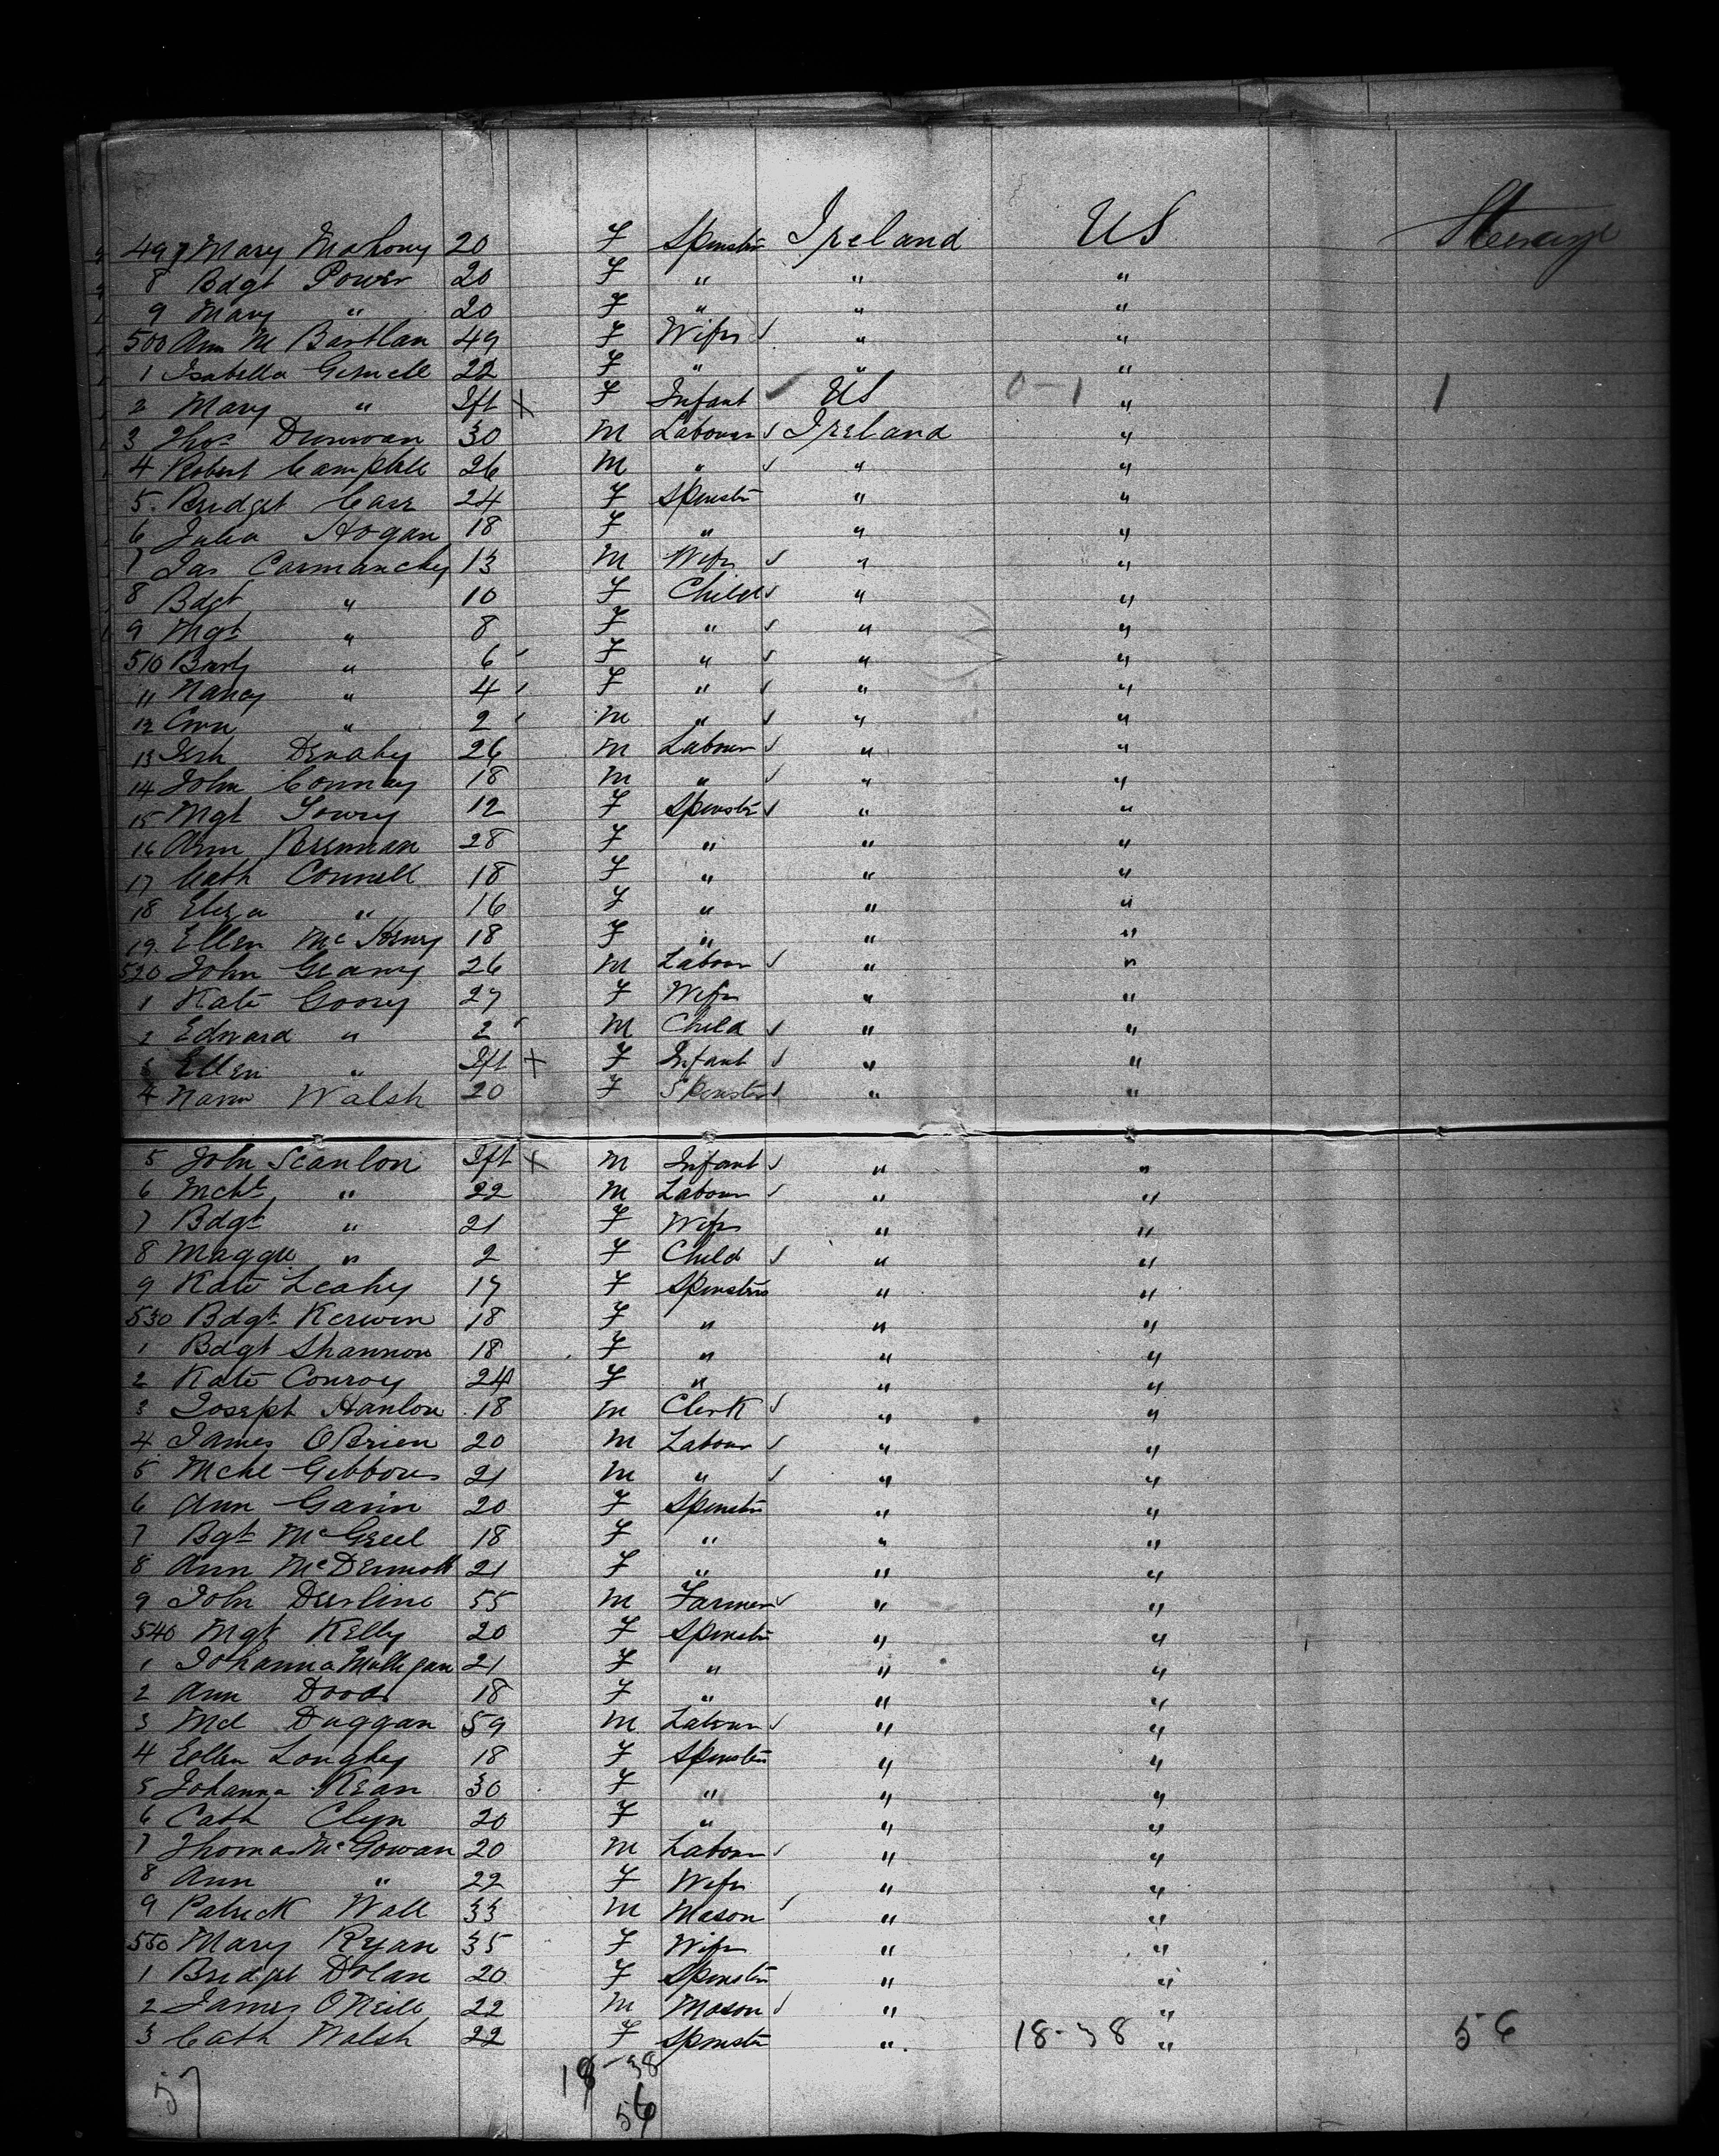 497 Mary Mahony 20 F Spinster Ireland US Steerage
8 Bdgt Power 20 F " " "
9 Mary " 20 F " " "
500 Ann M Bartlan 49 F Wife ✓ " "
1 Isabella 22 F " " "
2 Mary " Ift X F Infant ✓ US 0-1 " 1
3 Thos 30 M Labourer ✓ Ireland "
4 Robert Campbell 26 M " ✓ " "
5 Bridget Carr 24 F Spinster " "
6 Julia Hogan 18 F " " "
7 Jas 13 M Wife ✓ " "
8 Bdgt " 10 F Child ✓ " "
9 Mgt " 8 F " ✓ " "
510 " 6 ✓ F " ✓ " "
11 Nancy " 4 ✓ F " ✓ " "
12 " 2 ✓ M " ✓ " "
13 26 M Labour ✓ " "
14 John 18 M " ✓ " "
15 Mgt 12 F Spinster ✓ " "
16 Ann Brennan 28 F " " "
17 Cath Connell 18 F " " "
18 Eliza " 16 F " " "
19 Ellen 18 F " " "
520 John Geany 26 M Labour ✓ " "
1 Kate 27 F Wife " "
2 Edward " 2 ✓ M Child ✓ " "
3 Ellen " Ift X F Infant ✓ " "
4 Walsh 20 F Spinster ✓ " "
5 John Scanlon Ift X M Infant ✓ " "
6 Mchl " 22 M Labour ✓ " "
7 Bdgt " 21 F Wife " "
8 Maggie " 2 F Child ✓ " "
9 Kate Leahy 17 F Spinster " "
530 Bdgt Kerwin 18 F " " "
1 Bdgt Shannon 18 F " " "
2 Kate Conroy 24 F " " "
3 Joseph Hanlon 18 M Clerk ✓ " "
4 James OBrien 20 M Labour ✓ " "
5 Mchl Gibbons 21 M " ✓ " "
6 Ann Gavin 20 F Spinster " "
7 Bgt McGreel 18 F " " "
8 Ann McDermott 21 F " " "
9 John 55 M Farmer ✓ " "
540 Mgt Kelly 20 F Spinster " "
1 Johanna Mulligan 21 F " " "
2 Ann 18 F " " "
3 Md Duggan 59 M Labour ✓ " "
4 Ellen 18 F Spinster " "
5 Johanna Kean 30 F " " "
6 Cath Clyn 20 F " " "
7 Thomas McGowan 20 M Labour ✓ " "
8 Ann " 22 F Wife " "
9 Patrick Wall 33 M Mason ✓ " "
550 Mary Ryan 35 F Wife " "
1 Bridget Dolan 20 F Spinster " "
2 James ONeill 22 M Mason ✓ " "
3 Cath Walsh 22 F Spinster " 18-38 " 56
18-38
57 56